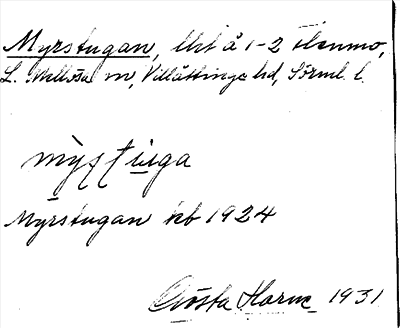 Myrstugan, lht å 1-2 Stenmo,
L. Mellösa sn, Villåttinge hd, Sörml. l.
Myrstugan kb 1924
Gösta Horne 1931